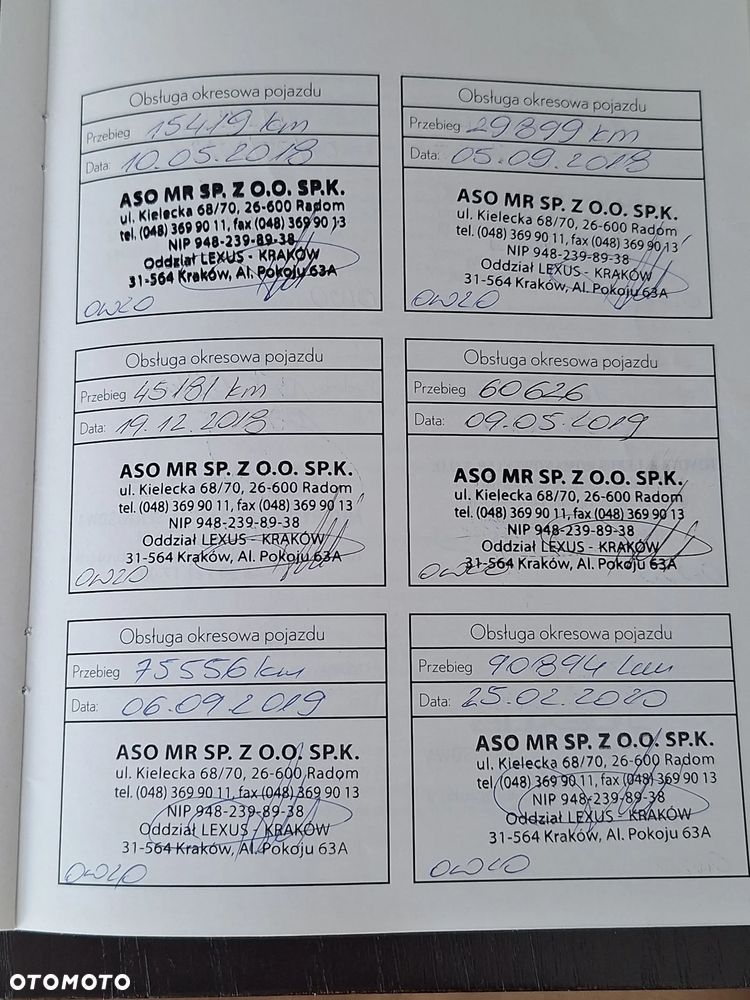 Obsługa okresowa pojazdu
Przebieg 15419 km
Data: 10.05.2018
ASO MR SP. Z O.O. SP.K.
ul. Kielecka 68/70, 26-600 Radom
tel. (048) 369 90 11, fax (048) 369 90 13
NIP 948-239-89-38
Oddział LEXUS - KRAKÓW
31-564 Kraków, Al. Pokoju 63A
0W20
Obsługa okresowa pojazdu
Przebieg 29899 km
Data: 05.09.2018
ASO MR SP. Z O.O. SP.K.
ul. Kielecka 68/70, 26-600 Radom
tel. (048) 369 90 11, fax (048) 369 90 13
NIP 948-239-89-38
Oddział LEXUS - KRAKÓW
31-564 Kraków, Al. Pokoju 63A
0W20
Obsługa okresowa pojazdu
Przebieg 45181 km
Data: 19.12.2018
ASO MR SP. Z O.O. SP.K.
ul. Kielecka 68/70, 26-600 Radom
tel. (048) 369 90 11, fax (048) 369 90 13
NIP 948-239-89-38
Oddział LEXUS - KRAKÓW
31-564 Kraków, Al. Pokoju 63A
0W20
Obsługa okresowa pojazdu
Przebieg 60626
Data: 09.05.2019
ASO MR SP. Z O.O. SP.K.
ul. Kielecka 68/70, 26-600 Radom
tel. (048) 369 90 11, fax (048) 369 90 13
NIP 948-239-89-38
Oddział LEXUS - KRAKÓW
31-564 Kraków, Al. Pokoju 63A
0W20
Obsługa okresowa pojazdu
Przebieg 75556 km
Data: 06.09.2019
ASO MR SP. Z O.O. SP.K.
ul. Kielecka 68/70, 26-600 Radom
tel. (048) 369 90 11, fax (048) 369 90 13
NIP 948-239-89-38
Oddział LEXUS - KRAKÓW
31-564 Kraków, Al. Pokoju 63A
0W20
Obsługa okresowa pojazdu
Przebieg 90894 km
Data: 25.02.2020
ASO MR SP. Z O.O. SP.K.
ul. Kielecka 68/70, 26-600 Radom
tel. (048) 369 90 11, fax (048) 369 90 13
NIP 948-239-89-38
Oddział LEXUS - KRAKÓW
31-564 Kraków, Al. Pokoju 63A
0W20
OTOMOTO